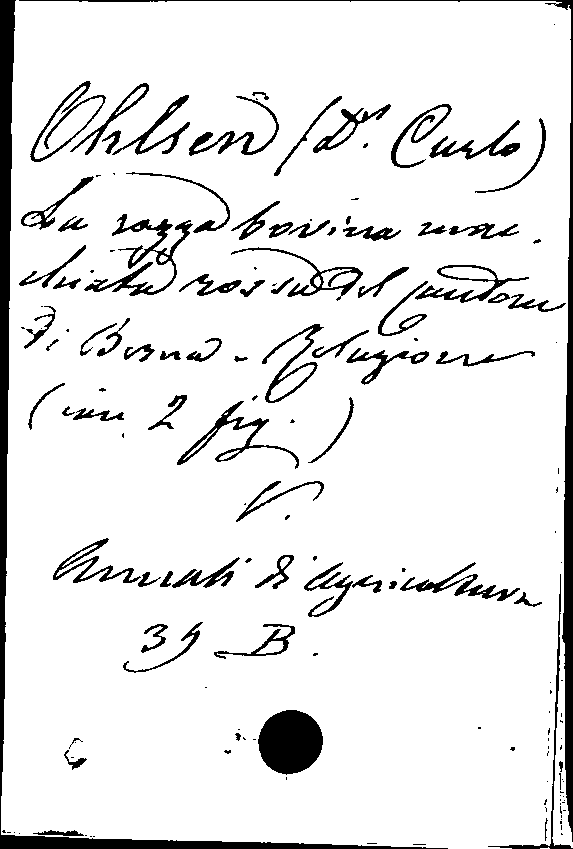 Ohlsen (Dr. Carlo)
La razza bovina mac-
chiata rossa del cantone
di Berna - Relazione
(con 2 fig.)
V.
Annali di agricoltura
39 B.